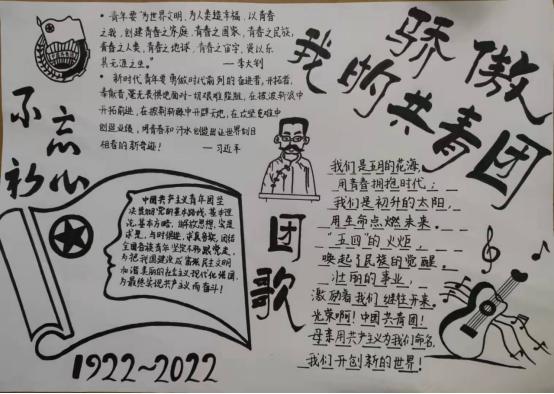 我的骄傲
共青团
不忘
初心
• “青年要“为世界文明，为人类造幸福，以青春
之我，创建青春之家庭，青春之国家，青春之民族，
青春之人类，青春之地球，青春之宇宙，资以乐
其无涯之生。”
—李大钊
• 新时代青年要勇做时代前列的奋进者，开拓者，
奉献者，毫无畏惧地面对一切艰难险阻，在
开拓前进，在披荆斩棘中开辟天地，在攻坚克难中
创造业绩，用青春和汗水创造出让世界刮目
相看的新奇迹！
—习近平
中国共产主义青年团坚
决拥护党的基本路线，基本理
论，基本方略，解放思想，实是
求是，与时俱进，求真务实，团结
全国各族青年坚定不移跟党走，
为把我国建设成富强民主文明
和谐美丽的社会主义现代化强国，
为最终实现共产主义而奋斗！
1922~2022
团歌
我们是五月的花海，
用青春拥抱时代；
我们是初升的太阳，
用生命点燃未来。
“五四”的火炬，
唤起了民族的觉醒。
壮丽的事业，
激励着我们继往开来。
光荣啊！中国共青团！
母亲用共产主义为我们命名，
我们开创新的世界！